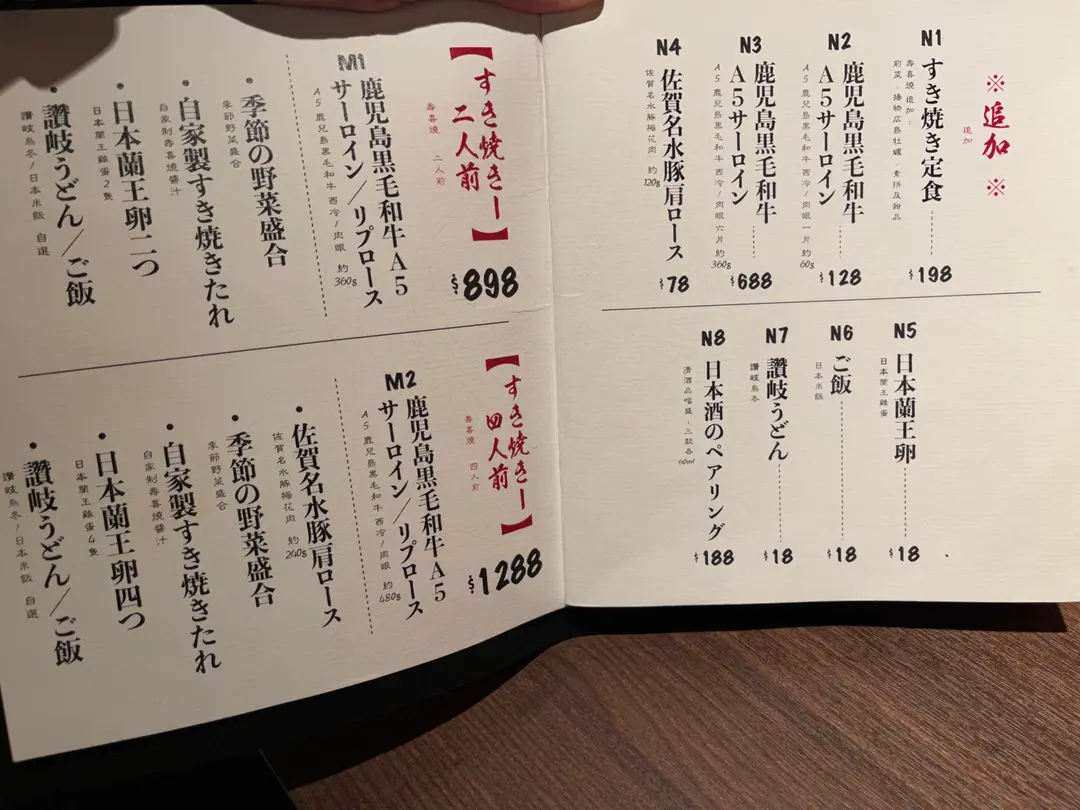 ※追加※
追加
N1
すき焼き定食
$198
壽喜燒 追加:
前菜、揚物広島牡蠣、素拼及甜品
N2
鹿児島黒毛和牛
A5サーロイン
$128
A5鹿兒島黑毛和牛西冷/肉眼一片 約60g
N3
鹿児島黒毛和牛
A5サーロイン
$688
A5鹿兒島黑毛和牛西冷/肉眼六片 約360g
N4
佐賀名水豚肩ロース
$78
佐賀名水豚梅花肉 約120g
N5
日本蘭王卵
$18
日本蘭王雞蛋
N6
ご飯
$18
日本米飯
N7
讃岐うどん
$18
讚岐烏冬
N8
日本酒のペアリング
$188
清酒品嚐盛-三款各60ml
【すき焼きー
二人前】
$898
壽喜燒 二人前
M1
鹿児島黒毛和牛A5
サーロイン/リブロース
A5鹿兒島黑毛和牛西冷/肉眼 約360g
・季節の野菜盛合
季節野菜盛合
・自家製すき焼きたれ
自家制壽喜燒醬汁
・日本蘭王卵二つ
日本蘭王雞蛋2隻
・讃岐うどん/ご飯
讚岐烏冬/日本米飯 自選
【すき焼きー
四人前】
$1288
壽喜燒 四人前
M2
鹿児島黒毛和牛A5
サーロイン/リブロース
A5鹿兒島黑毛和牛西冷/肉眼 約480g
・佐賀名水豚肩ロース
佐賀名水豚梅花肉 約240g
・季節の野菜盛合
季節野菜盛合
・自家製すき焼きたれ
自家制壽喜燒醬汁
・日本蘭王卵四つ
日本蘭王雞蛋4隻
・讃岐うどん/ご飯
讚岐烏冬/日本米飯 自選